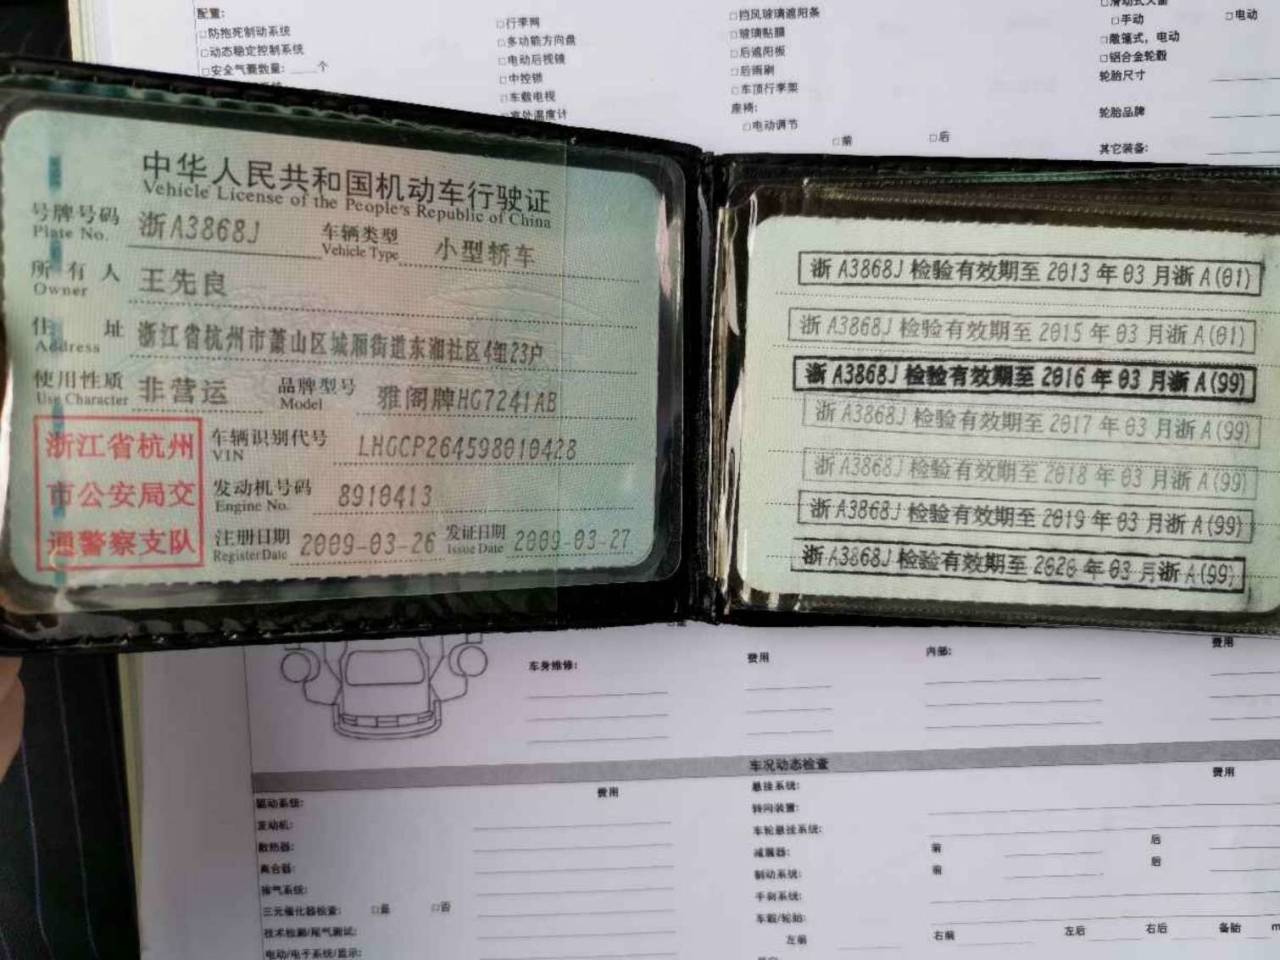 配置:
□防抱死制动系统
□动态稳定控制系统
□安全气囊数量: ____个
□行李网
□多功能方向盘
□电动后视镜
□中控锁
□车载电视
□室外温度计
□挡风玻璃遮阳条
□玻璃贴膜
□后遮阳板
□后雨刷
□车顶行李架
座椅:
□电动调节
□前 □后
□手动 □电动
□敞篷式，电动
□铝合金轮毂
轮胎尺寸
轮胎品牌
其它装备:
中华人民共和国机动车行驶证
Vehicle License of the People's Republic of China
号牌号码 浙A3868J 车辆类型 小型轿车
Plate No. Vehicle Type
所有人 王先良
Owner
住址 浙江省杭州市萧山区城厢街道东湘社区4组23户
Address
使用性质 非营运 品牌型号 雅阁牌HG7241AB
Use Character Model
浙江省杭州
市公安局交
通警察支队
车辆识别代号 LHGCP264598010428
VIN
发动机号码 8910413
Engine No.
注册日期 2009-03-26 发证日期 2009-03-27
Register Date Issue Date
浙A3868J检验有效期至2013年03月浙A(01)
浙A3868J检验有效期至2015年03月浙A(01)
浙A3868J检验有效期至2016年03月浙A(99)
浙A3868J检验有效期至2017年03月浙A(99)
浙A3868J检验有效期至2018年03月浙A(99)
浙A3868J检验有效期至2019年03月浙A(99)
浙A3868J检验有效期至2020年03月浙A(99)
车身维修: 费用 内部: 费用
车况动态检查
费用 费用
驱动系统:
发动机:
散热器:
离合器:
排气系统:
三元催化器检查: □是 □否
技术检测/尾气测试:
电动/电子系统/显示:
悬挂系统:
转向装置:
车轮悬挂系统:
减震器: 前 后
制动系统: 前 后
手刹系统:
车毂/轮胎:
左前 右前 左后 右后 备胎